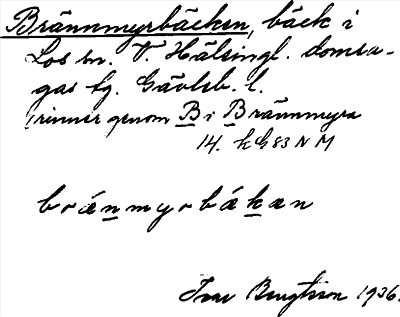 Brännmyrbäcken, bäck i
Los sn. V. Hälsingl. domsa-
gas tg. Gävleb. l.
rinner genom B i Brännmyra
14. h G 83 N M
bränmyrbäkan
Ivar Bengtsson 1936.